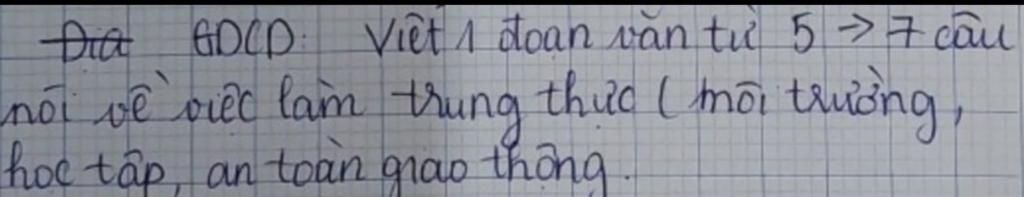 Địa GDCD: Viết 1 đoạn văn từ 5 → 7 câu
nói về việc làm trung thực (môi trường,
học tập, an toàn giao thông.